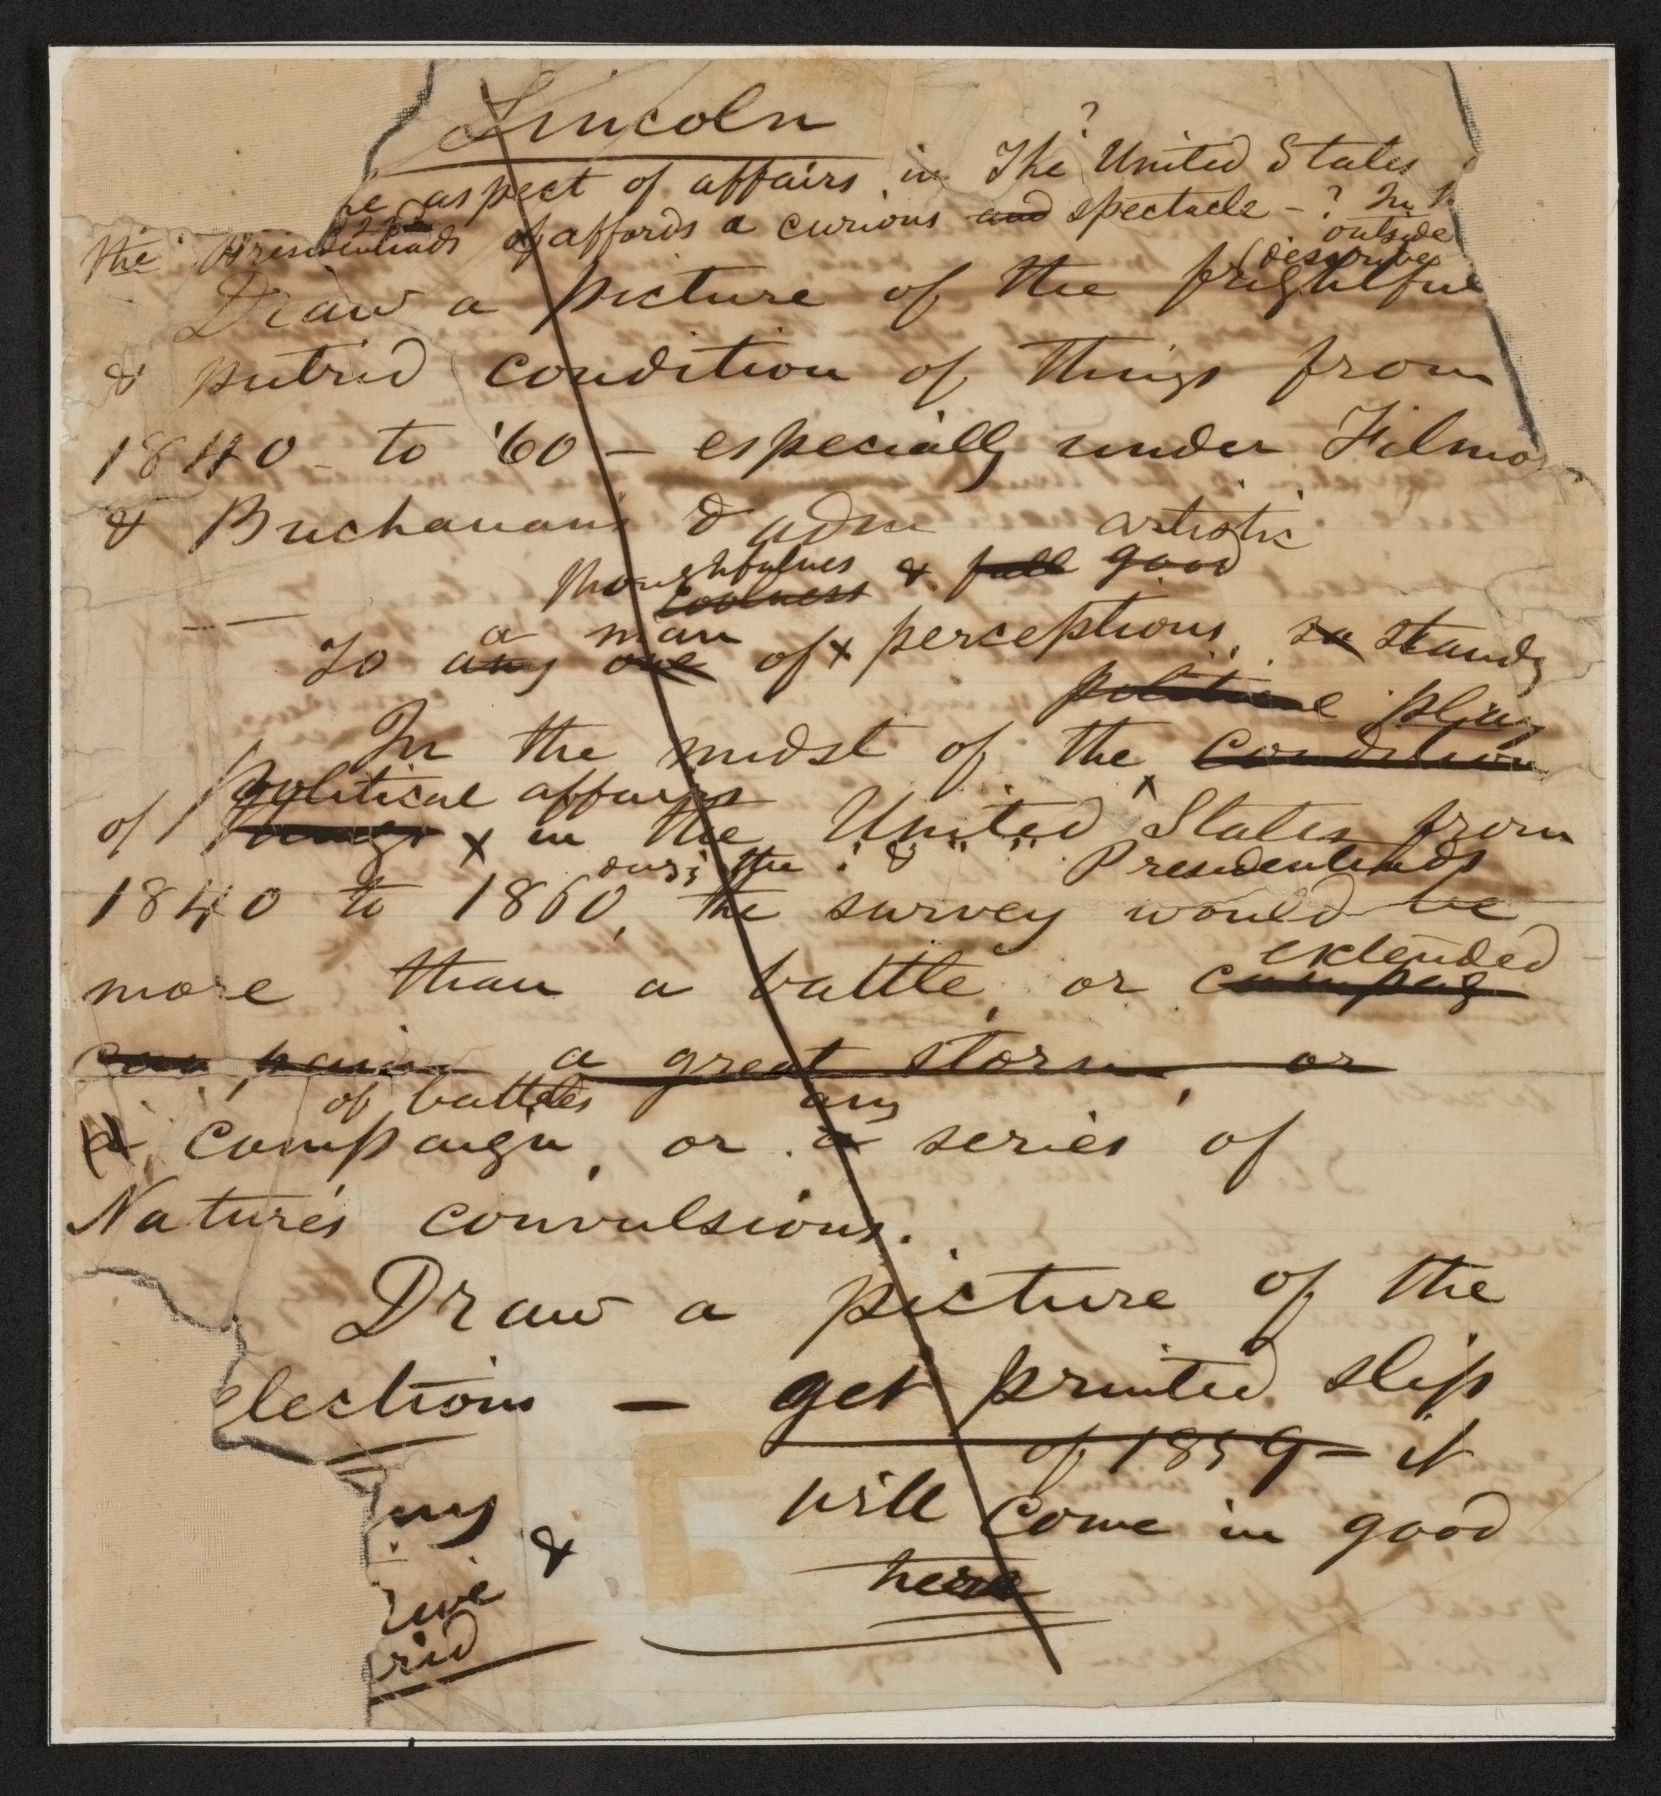 Lincoln
?
he aspect of affairs in The United States
the Presidentiads of affords a curious and spectacle – ? In
outside
(describe
Draw a picture of the frightful
& putrid condition of things from
1840 – to '60 – especially under Filmo
& Buchanan's adm
artistic
thoughtfulness & full good
coolness
a man
To any one of x perceptions, so stands
political
In the midst of the condition
political affairs
of things x in the United States from
the & " " Presidentiads
1840 to 1860, the survey would be
extended
more than a battle, or campaig
a great storm, or
of battles any
a campaign, or a series of
Nature's convulsions.
Draw a picture of the
elections — get printed slip
of 1859 – it
will come in good
here
&
rid